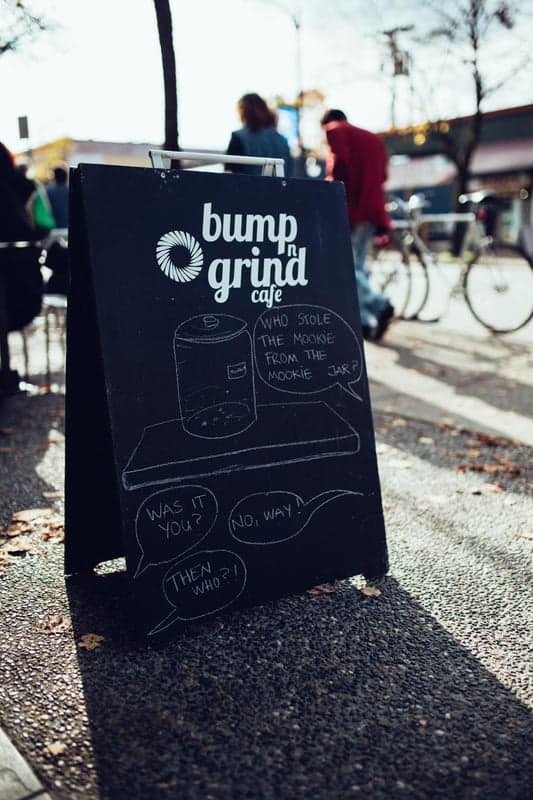 bump
n
grind
cafe
WHO STOLE
THE MOOKIE
FROM THE
MOOKIE JAR?
WAS IT
YOU?
NO, WAY!
THEN
WHO?!